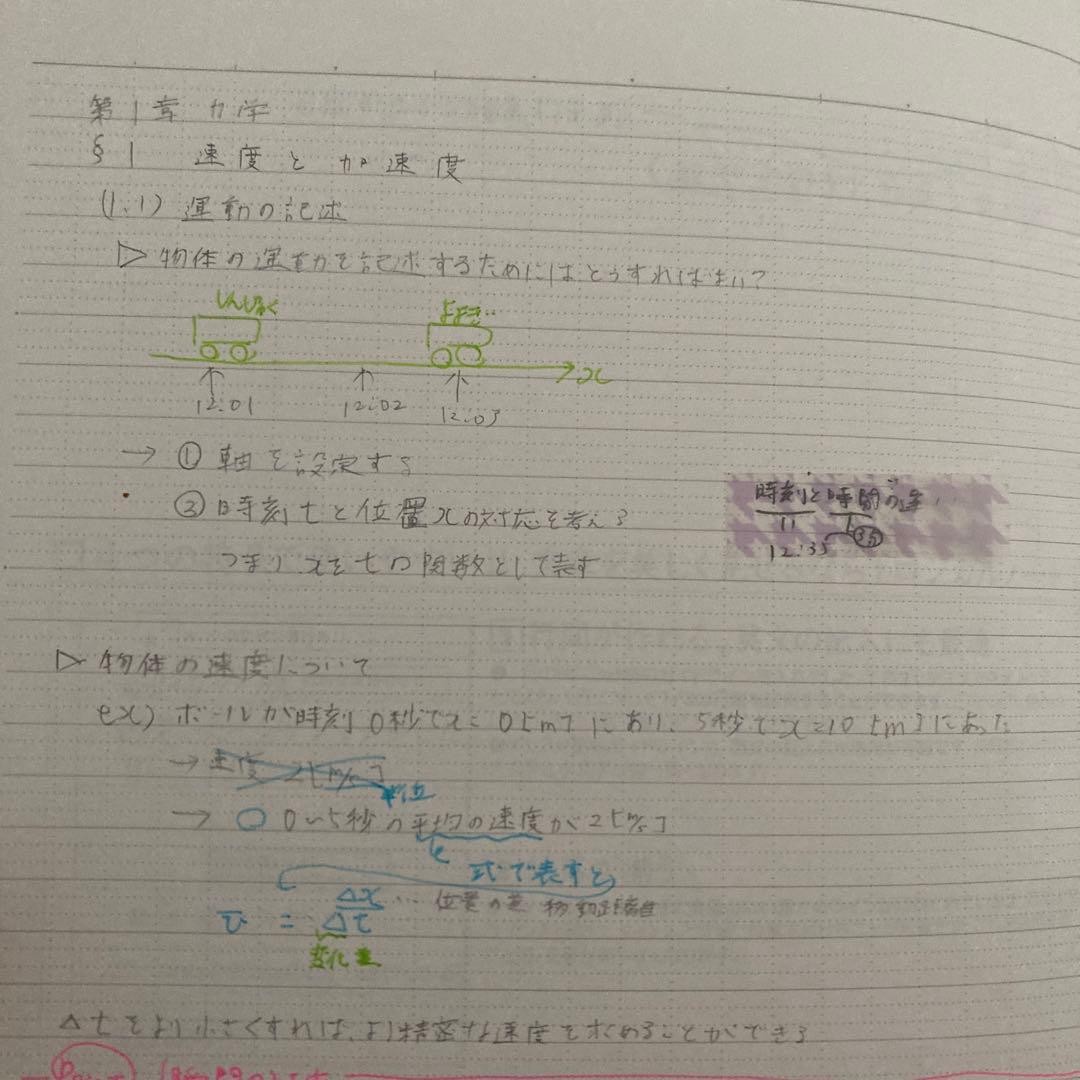 第1章 力学
§1 速度と加速度
(1.1) 運動の記述
▷物体の運動を記述するためにはどうすればよい?
しんじゅく よよぎ
x
12:01 12:02 12:03
→ ① 軸を設定する
② 時刻tと位置xの対応を考える
つまりxをtの関数として表す
時刻と時間の違
12:35
▷物体の速度について
ex) ボールが時刻0秒でx=0[m]にあり、5秒でx=10[m]にあった
→ 速度 2[m/s]
単位
→ ○ 0〜5秒の平均の速度が2[m/s]
式で表すと
v̄ = Δx/Δt … 位置の差 移動距離
変化量
Δtをより小さくすれば、より精密な速度を求めることができる